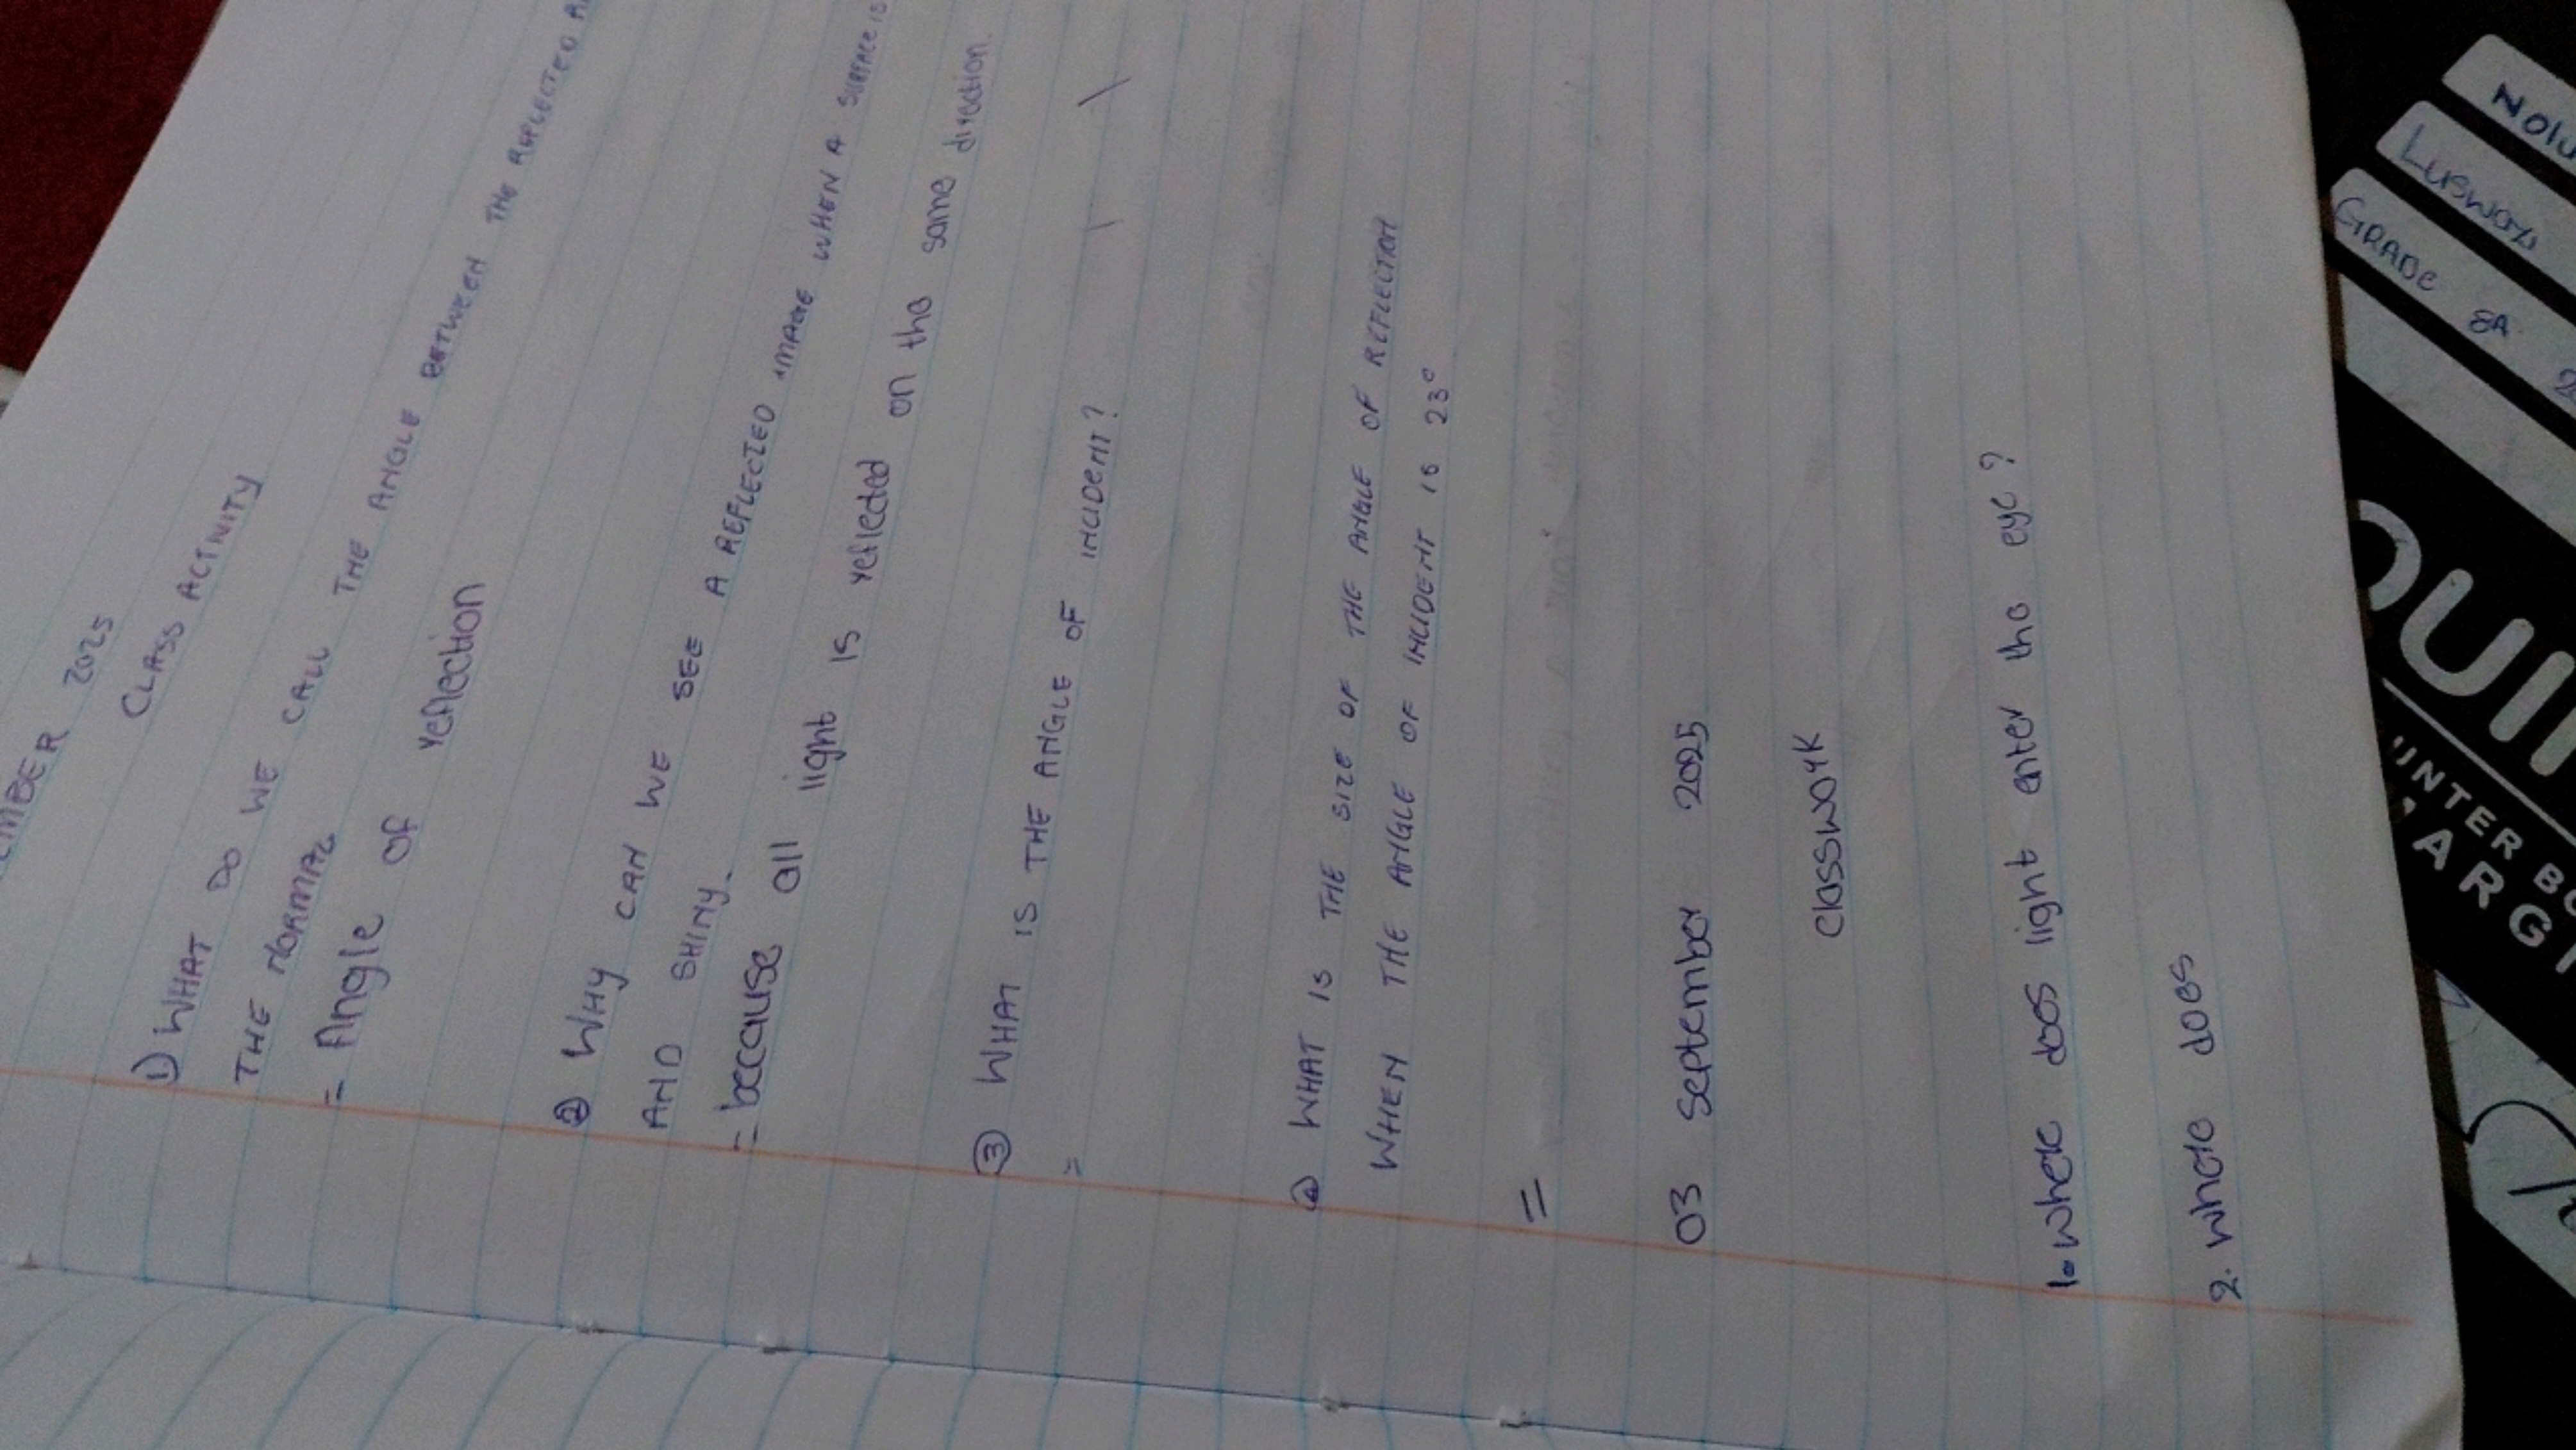 2025
CLASS ACTIVITY
1) WHAT DO WE CALL THE ANGLE BETWEEN THE REFLECTED
THE NORMAL
= Angle of reflection
2 WHY CAN WE SEE A REFLECTED IMAGE WHEN A SURFACE IS
AND SHINY.
= beccause all light is reflected on the same direction.
3 WHAT IS THE ANGLE OF INCIDENT?
=
4 WHAT IS THE SIZE OF THE ANGLE OF REFLECTION
WHEN THE ANGLE OF INCIDENT IS 23°
=
03 September 2025
Classwork
1. Where does light enter the eye?
2. Where does
Nolu
GRADE 8A
QUI
UNTER BO
MARGI